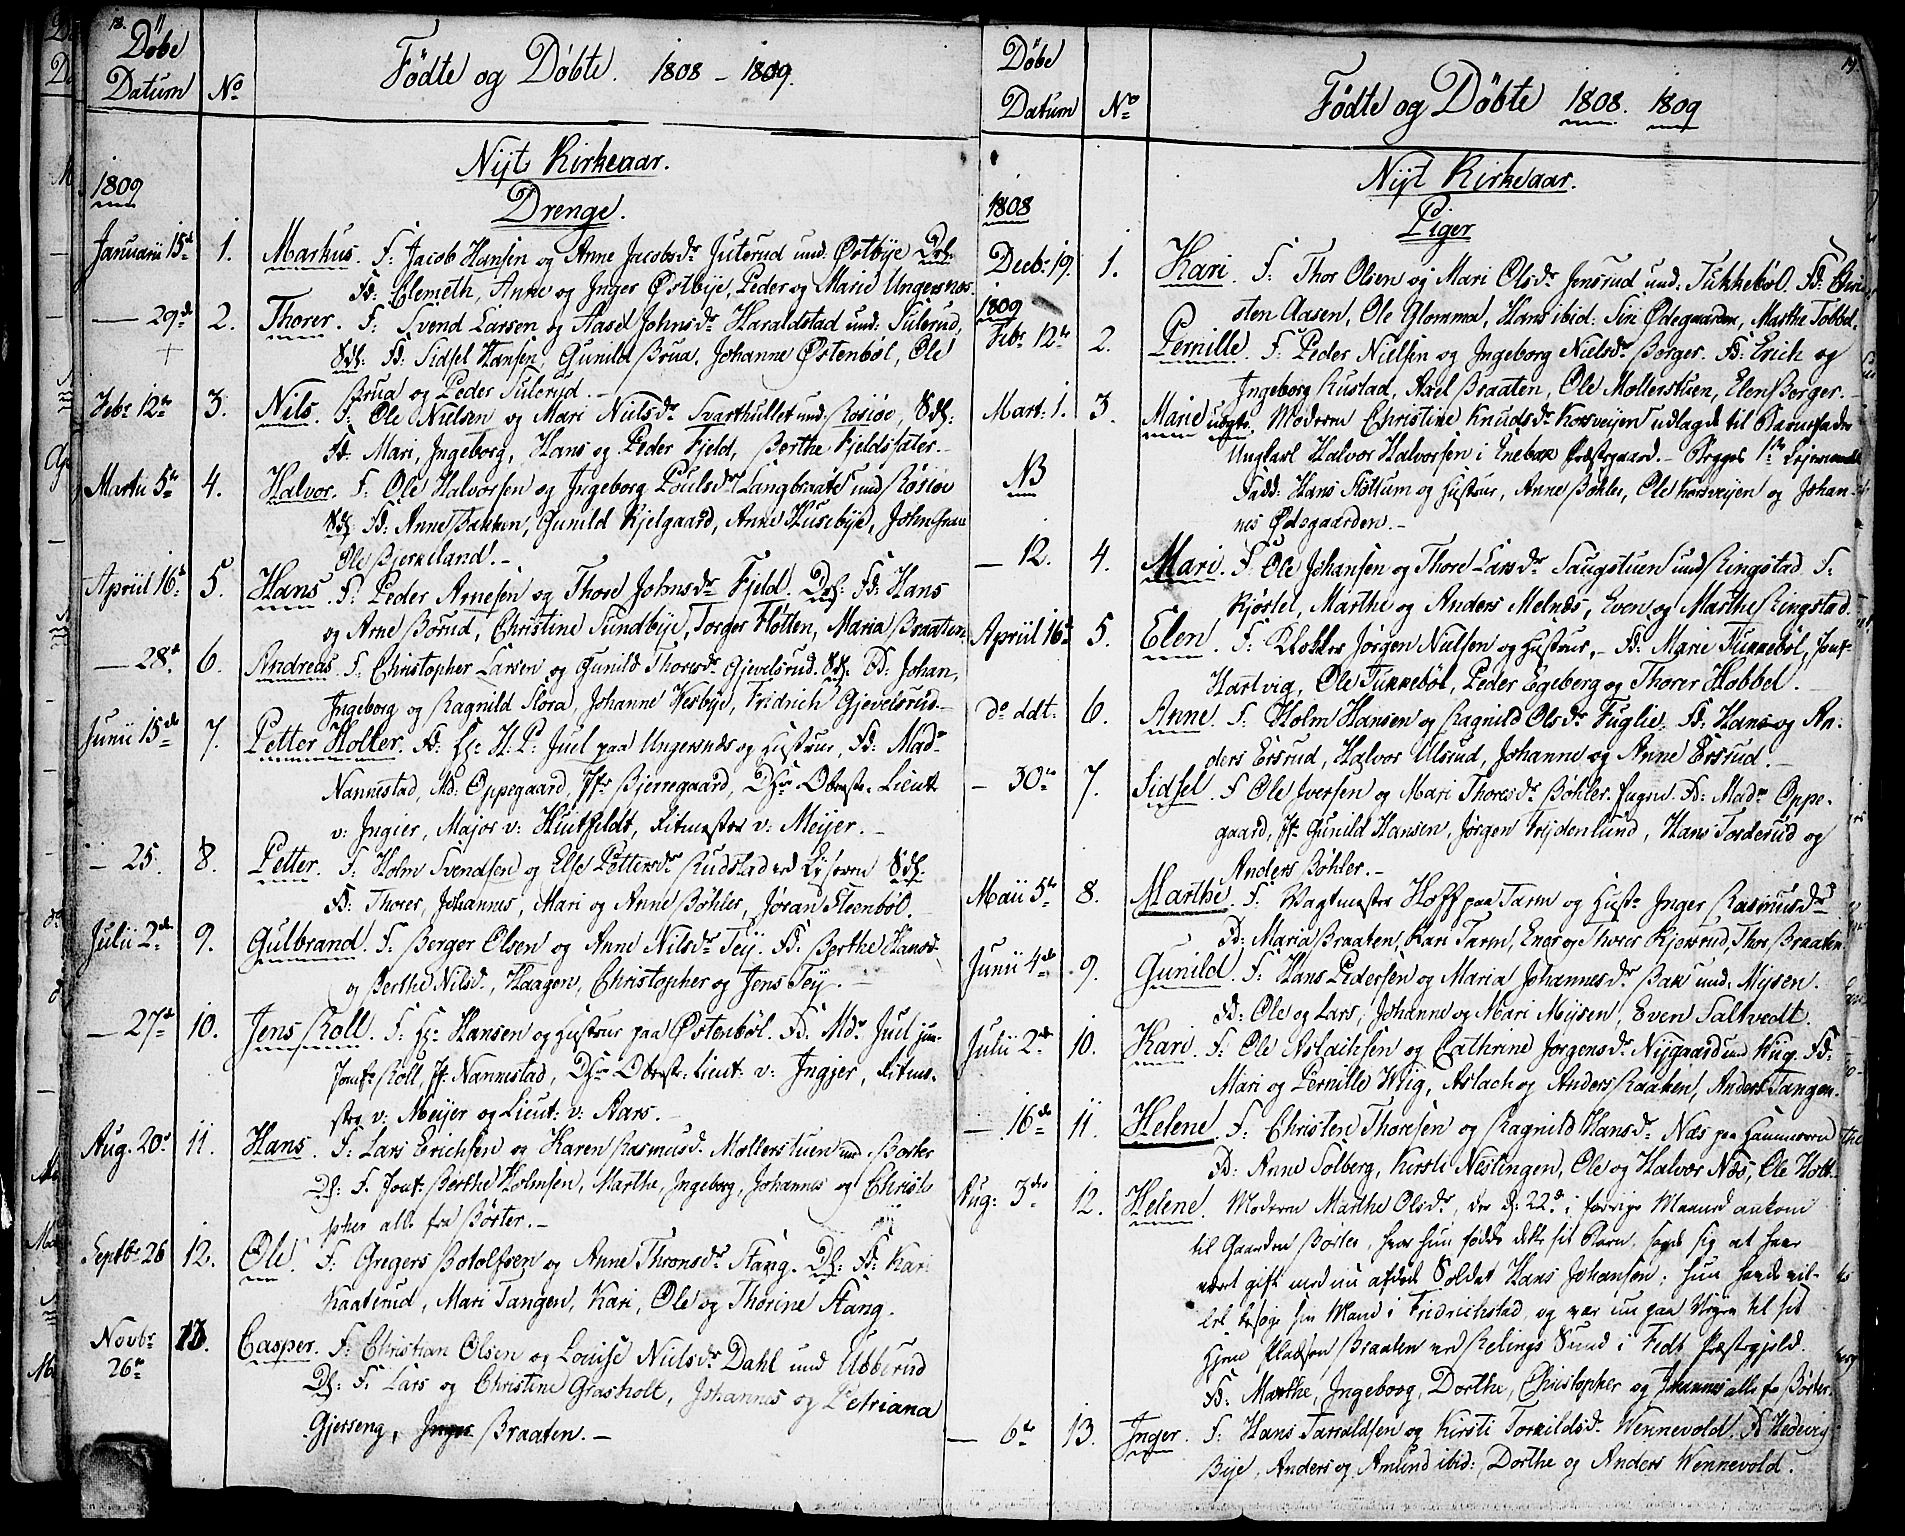 18.
Döbe
Datum No
Födte og Döbte. 1808 - 1809.
Nÿt Kirkeaar.
Drenge.
1809
Januarii 15de 1. Markus. F: Jacob Hansen og Anne Jacobsdr Juterud und. Østbÿe
Fd: Clemeth, Anne og Inger Østbÿe, Peder og Marie Ungersnes.
— 29de 2. Thorer. F: Svend Larsen og Aasel Johnsdr Haraldstad und: Tulerud,
Fd: Sidsel Hansen, Gunild Brua, Johanne Østenböl, Ole
Brua og Peder Tulerud.—
Febr 12te 3. Nils. F: Ole Nilsen og Mari Nilsdr Svarthullet und: Rosiöe,
Fd: Mari, Ingeborg, Hans og Peder Fjeld, Berthe Fjeldsæter.—
Martii 5te 4. Halvor. F: Ole Halvorsen og Ingeborg Poulsdr Langbraatet und Rösiöe
Fd: Anne Bakken, Gunild Kjelgaard, Anne Husebÿe, John
Ole Bjerkeland.—
Apriil 16de 5. Hans. F: Peder Arnesen og Thore Johnsdr Fjeld. Fd: Hans
og Arne Börud, Christine Sundbÿe, Torger Flötten, Maria Braaten.
— 28de 6. Andreas. F: Christopher Larsen og Gunild Thoresdr Gjevelsrud. Fd: Johan,
Ingeborg og Ragnild Flora, Johanne Vesbÿe, Fridrich Gjevelsrud—
Junii 15de 7. Petter Holter. Fd: Hr: H: P: Juel paa Ungersnes og Hustrue, Fd: Mad:
Nannestad, Md: Oppegaard, Jfr Bjerregaard, Obrist. Lieut
v: Ingier, Major v: Huitfeldt, Ritmester v: Meijer.—
— 25. 8. Petter. F: Holm Svendsen og Else Pettersdr Rudstad ved
Fd: Thorer, Johannes, Mari og Anne Böhler, Jöran Steenböl.
Julii 2de 9. Gulbrand. F: Berger Olsen og Anne Nilsdr Teÿ. Fd: Berthe Hansd:
og Berthe Nilsd., Haagen, Christopher og Jens Teÿ.—
— 27de 10. Jens Roll. F: Hr: Hansen og Hustrue paa Østenböl. Fd. Mdr Juel jun:
Jomf: Roll, Jfr: Nannestad, Obrist: Lieut: v: Ingjer, Ritme-
ster v: Meijer og Lieut: v: Aars.—
Aug. 20de 11. Hans. F: Lars Erichsen og Karen Rasmusd. Møllerstuen und. Börter
F. Jomf: Berthe Holmsen, Marthe, Ingeborg, Johannes og Christo
pher alle fra Börter.—
Septbr 26 12. Ole. F: Gregers Botolfsen og Anne Thronsdr Stang. Fd: Kari
Kaaterud, Mari Tangen, Kari, Ole og Thorine Stang.
Novbr 26de 13. Casper. F: Christian Olsen og Louise Nielsdr Dahl und Ubberud
F: Lars og Christine Grasholt, Johannes og Petriana
Gjerseng, Inger Braaten.—
19.
Döbe
Datum No
Födte og Döbte 1808. 1809
Nÿt Kirkeaar.
Piger
1808
Decbr 19. 1. Kari. F: Thor Olsen og Mari Olsdr Jensrud und: Tukkeböl. Fd:
sten Aasen, Ole Glomma, Hans ibid: Siri Ødegaarden, Marthe Tobbel.
1809
Febr 12te 2. Pernille. F: Peder Nielsen og Ingeborg Nielsdr Borger. Fd: Erich og
Ingeborg Rustad, Axel Braaten, Ole Møllerstuen, Elen Borger.—
Mart: 1. 3. Marie uægte. Moderen Christine Knudsdr Korsveien udlagde til Barnefader
Ungkarl Halvor Halvorsen i Enebak Præstegaard.— Begges 1te Lejermaal
NB Fadd: Hans Flottum og Hustrue, Anne Böhler, Ole Korsveijen og Johan-
nes Ødegaarden.—
— 12. 4. Mari. F: Ole Johansen og Thore Larsdr Saugstuen und Ringstad F:
Kjöstel, Marthe og Anders Melnæs, Even og Marthe Ringstad.
Apriil 16de 5. Elen. F: Klokker Jörgen Nielsen og Hustrue,— Fd: Marie Tukkeböl, Jomf:
Hartvig, Ole Tukkeböl, Peder Egeberg og Thorer Hobbel.—
do ddt. 6. Anne. F: Holm Hansen og Ragnild Olsdr Fuglie. Fd: Hans og An-
ders Ersrud, Halvor Ulsrud, Johanne og Anne Ersrud.—
— 30te 7. Sidsel. F Ole Iversen og Mari Thoresdr Böhler. Fd: Madr Oppe-
gaard, Jfr: Gunild Hansen, Jörgen Frijdenlund, Hans Torderud og
Anders Böhler.—
Maii 5te 8. Marthe. F: Vagtmester Hoff paa Tarm og Hustr Inger Rasmusdr
Fd: Maria Braaten, Kari Tarm, Ener og Thorer Kjersrud, Thor Braaten.
Junii 4de 9. Gunild. F: Hans Pedersen og Maria Johannesdr Bak und: Mijsen.
Fd: Ole og Lars, Johanne og Mari Mijsen, Even Saltvedt.
Julii 2de 10. Kari. F: Ole Aslachsen og Cathrine Jorgensdr Nijgaard und Wiig. Fd:
Mari og Pernille Wiig, Aslach og Anders Raaken, Anders Tangen.
— 16de 11. Helene. F: Christen Thoresen og Ragnild Hansdr Næs paa Hammeren
Fd: Anne Solberg, Kirsti Neslingen, Ole og Halvor Næs, Ole Holt.
Aug: 3de 12. Helene. Moderen Marthe Olsdr, der d: 22de i forrige Maaned ankom
til Gaarden Börter, hvor hun födde dette sit Barn, sagde sig at have
været gift med nu afdöde Soldat Hans Johansen; hun havde vil-
let besöge sin Mand i Fridrichstad, og var nu paa Veyen til sit
Hjem Pladsen Braaten ved Relings Sund i Fedt Præstegjeld.
Fd: Marthe, Ingeborg, Dorthe, Christopher og Johannes alle fr Börter.
— 6te 13. Inger. F: Hans Tarraldsen og Kirsti Torkildsd. Wennevold. Fd Hedevig
Bije, Anders og Amund ibid:, Dorthe og Anders Wennevold.